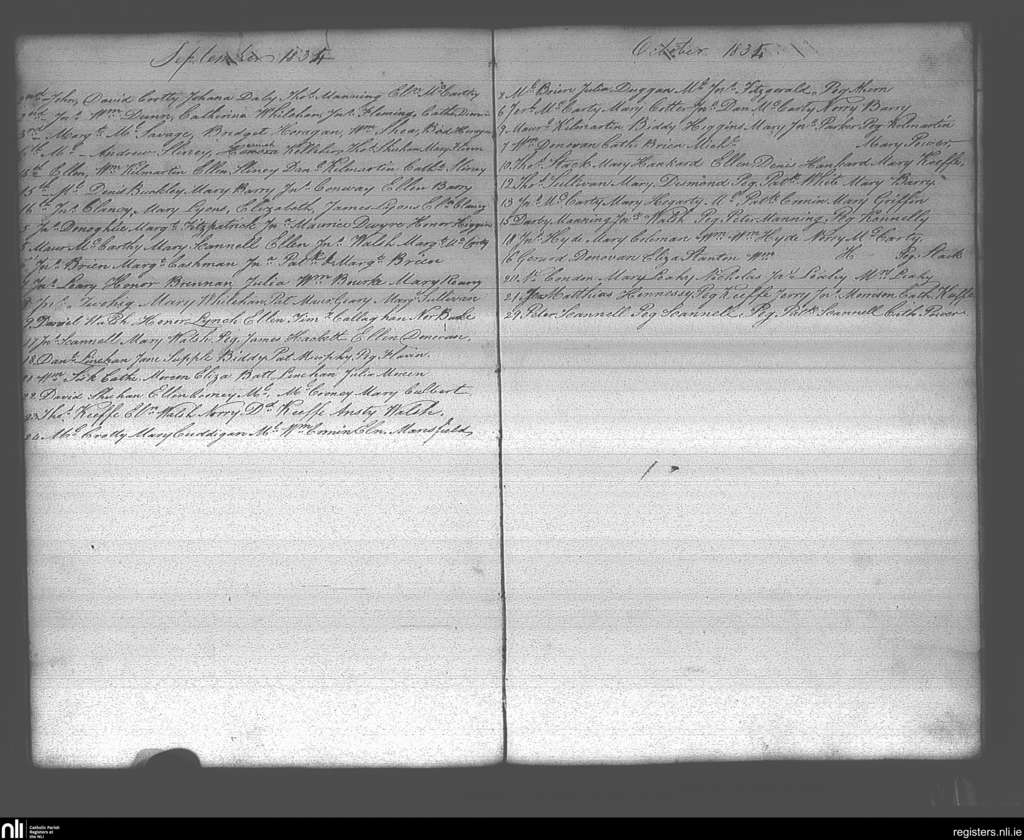 September 1834
John, David Crotty Johana Daly Thos. Manning Elln. McCarthy
Jno. Wm. Dunn, Catherine Whilehan Jno. Fleming, Cath.
3rd Margt. Mc. Savage, Bridget Horagan, Wm. Shea, Bid.
Andrew Sleney, Kelleher Thos. Sheehan Mary
15th Ellen, Wm. Kilmartin Ellen Sleney Danl. Kilmartin Cathe. Sleney
15th Ml. Denis Buckley, Mary Barry Jno. Conway Ellen Barry
16th Jno. Clancy, Mary Lyons, Elizabeth, James Lyons Elln. Clancy
5 Jno. Donoghue Margt. Fitzpatrick Jno. Maurice Dwyre Honor Higgins
Maure. McCarthy Mary Scannell Ellen Jno. Walsh Margt. McCarty
Jno. Brien Margt. Cashman Jno. Patk. & Margt. Brien
Jno. Leary Honor Brennan Julia Wm. Burke Mary
Twohig Mary Whilehan Pat Maure. Geary Mary Sullivan
9 Daniel Walsh Honor Lynch Ellen Timy. Callaghan Nor
11 Jno. Scannell Mary Walsh Peg James Hackett Ellen Donovan
18 Danl. Linehan Jane Supple Biddy Pat Murphy Peg Flavin
21 Wm. Sisk Cathe. Moreen Eliza Batt. Linehan Julia Moreen
22 David Sheehan Ellen Corney Ml. Ml. Corney Mary Culbert
23 Thos. Keeffe Elln. Walsh Norry Dd. Keeffe Ansty Walsh
24 Ml. Crotty Mary Cuddigan Ml. Wm. Cronin Eln. Mansfield
October 1834
2 Ml. Brien Julia Duggan Ml. Jno. Fitzgerald Peg Ahern
6 McCarty Mary Cotter Jno. Danl. McCarty Norry Barry
9 Maure. Kilmartin Biddy Higgins Mary Jno. Parker Peg Kilmartin
7 Wm. Donovan Cath. Brien Michl. Mary Power
10 Thos. Stack Mary Hankard Ellen Denis Hankard Mary Keeffe
12 Thos. Sullivan Mary Desmond Peg Patk. White Mary Barry
13 Jno. McCarty Mary Hegarty Ml. Patk. Cronin Mary Griffin
15 Darby Manning Jno. Walsh Peg Peter Manning Peg Kennelly
18 Jno. Hyde Mary Coleman Wm. Wm. Hyde Nory McCarty
16 Gerard Donovan Eliza Stanton Wm. Peg Stack
20 N. Condon Mary Leahy Nicholas Jno. Leahy Mary Leahy
21 Matthias Hennessy Peg Keeffe Jerry Jno. Morrison Cath. Keeffe
29 Peter Scannell Peg Scannell Peg Patk. Scannell Cath. Power
nli Catholic Parish Registers at the NLI
registers.nli.ie